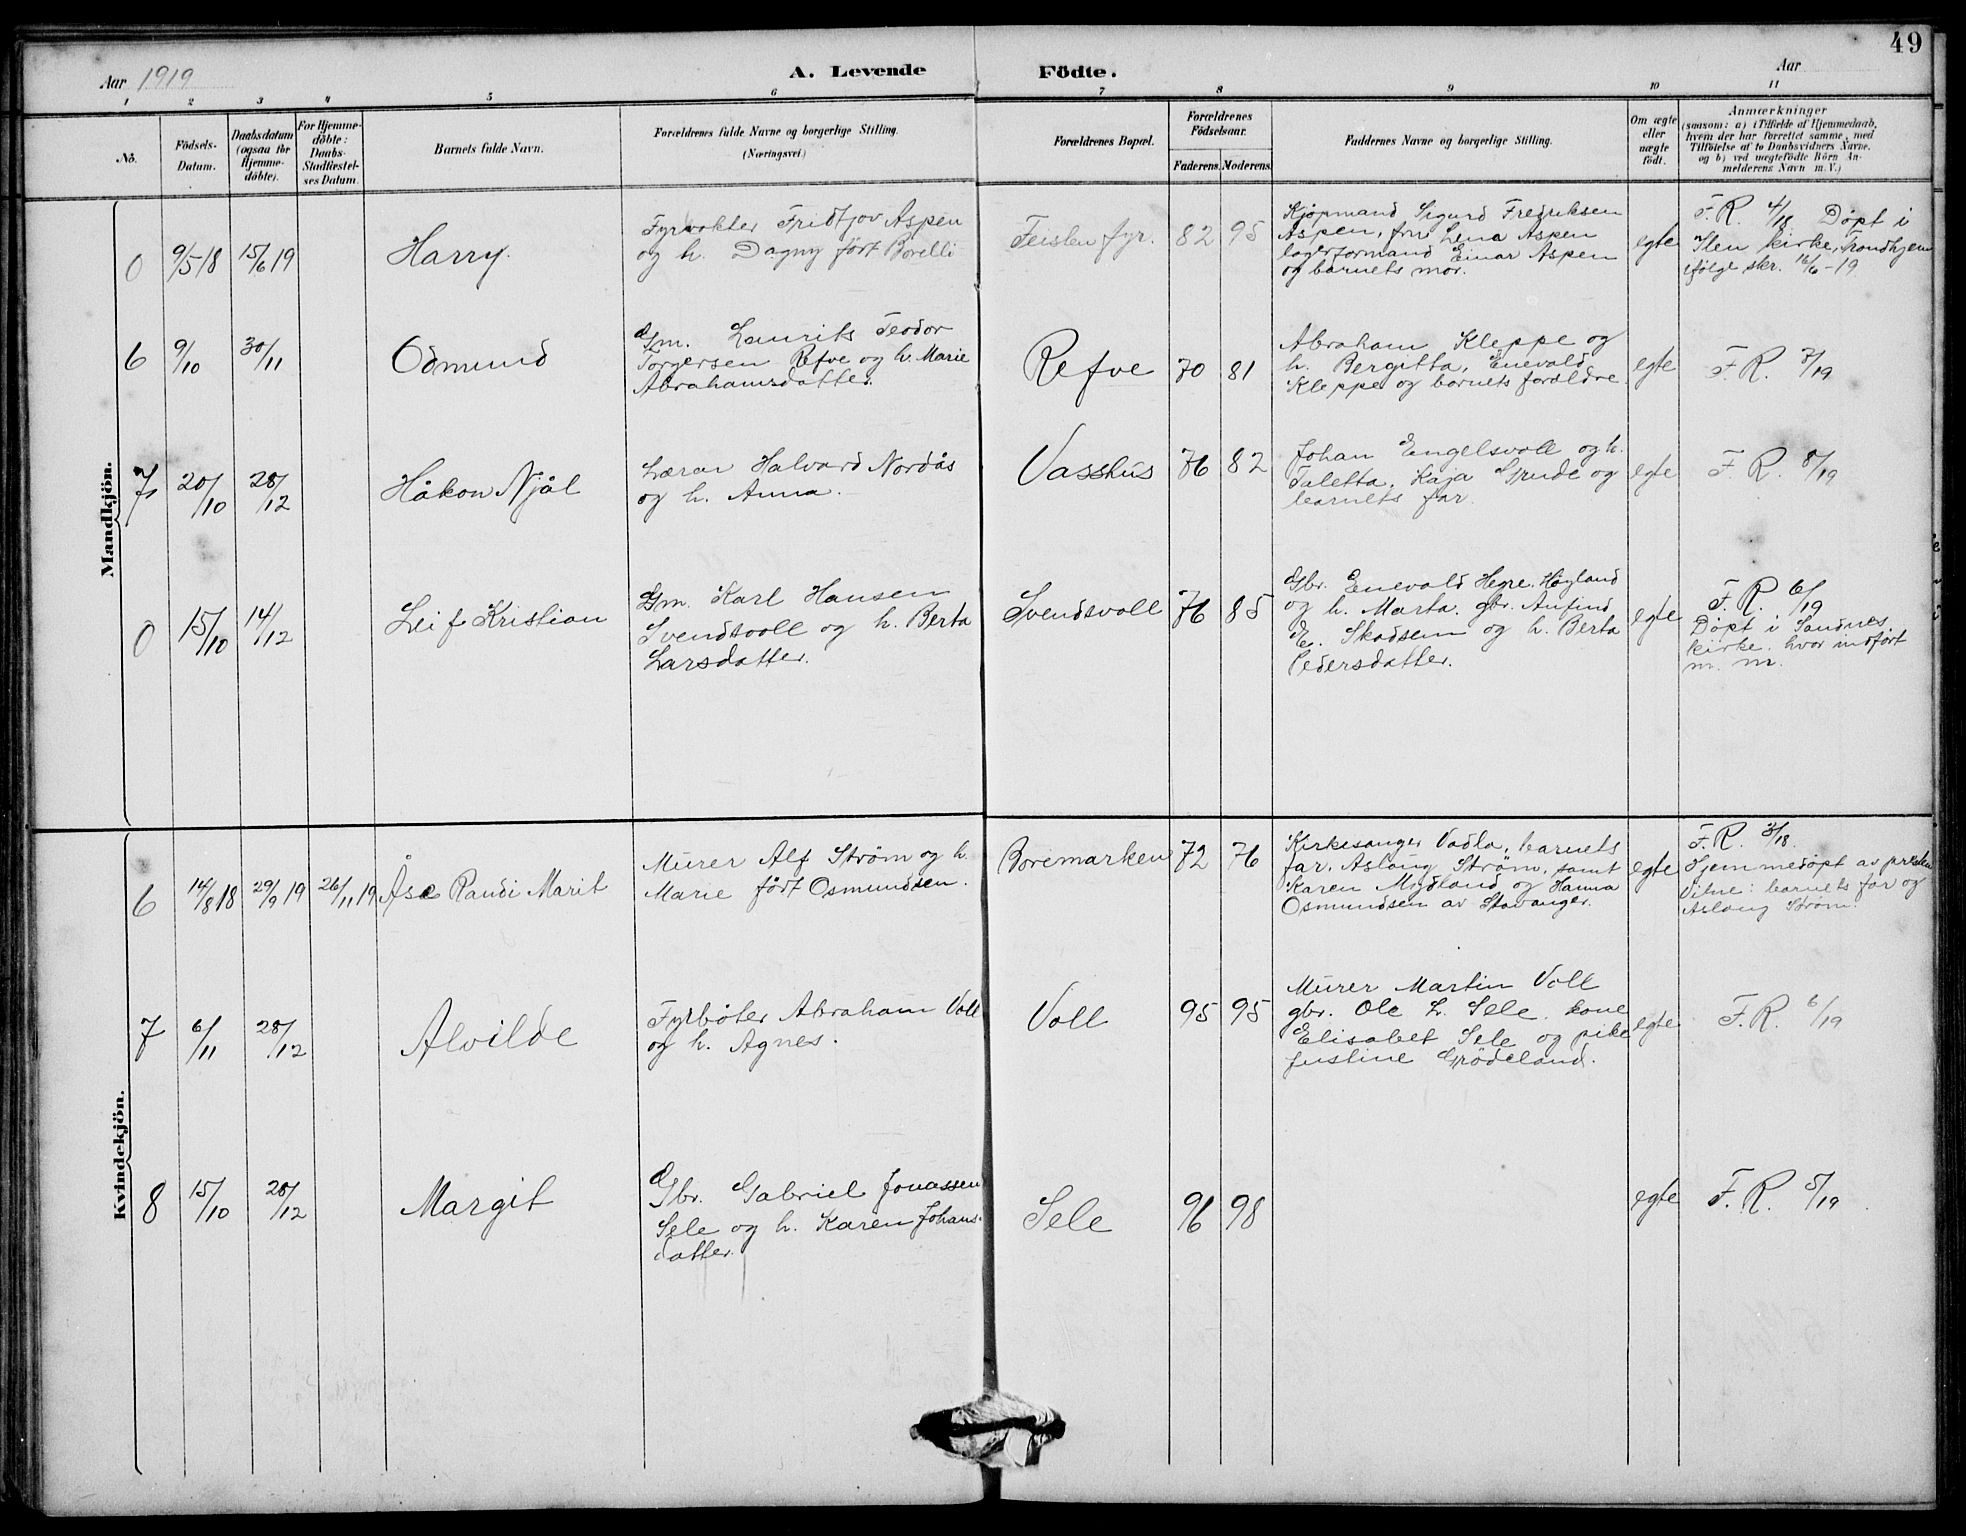 49
Aar 1919
A. Levende
Födte.
Aar
1 2 3 4 5 6 7 8 9 10 11
No.
Födsels-
Datum.
Daabsdatum
(ogsaa for
Hjemme-
döbte).
For Hjemme-
döbte:
Daabs-
Stadfæstel-
ses Datum.
Barnets fulde Navn.
Forældrenes fulde Navne og borgerlige Stilling.
(Næringsvei.)
Forældrenes Bopæl.
Forældrenes
Födselsaar.
Faderens. Moderens.
Faddernes Navne og borgerlige Stilling.
Om ægte
eller
uægte
födt.
Anmærkninger
(saasom: a) i Tilfælde af Hjemmedaab,
hvem der har forrettet samme, med
Tilföielse af to Daabsvidners Navne.
og b) ved uægtefödte Börn An-
melderens Navn m. V.)
Mandkjön.
0 9/5 18 15/6 19 Harry.
Fyrvokter Fridtjov Aspen
og h. Dagny født Borelli
Feisten fyr. 82 95
Kjøpmand Sigurd Fredriksen
Aspen, fru Lena Aspen
lagerformand Einar Aspen
og barnets mor.
egte
F. R. 4/18 Døpt i
Ilen kirke, Trondhjem
ifølge skr. 16/6-19
6 9/10 30/11 Odmund
Gm. Laurits Teodor
Torgersen Refve og h. Marie
Abrahamsdatter.
Refve 70 81
Abraham Kleppe og
h. Bergitta, Enevald
Kleppe og barnets foraldre
egte F. R. 7/19
7 20/10 28/12 Håkon Njål
Lærar Halvard Nordås
og h. Anna.
Vasshus 76 82
Johan Engelsvoll og h.
Taletta, Kaja Grude og
barnets far.
egte F. R. 8/19
0 15/10 14/12 Leif Kristian
Gm. Karl Hansen
Svendsvoll og h. Berta
Larsdatter.
Svendsvoll 76 85
Gbr. Enevald Hegre. Høyland
og h. Marta. gbr. Anfind
E. Skadsem og h. Berta
Pedersdatter.
egte
F. R. 6/19
Døpt i Sandnes
kirke. hvor indført
m. m.
Kvindekjön.
6 14/8 18 29/9 19 26/11 19 Åse Randi Marit
Murer Alf Strøm og h.
Marie født Osmundsen.
Boremarken 72 76
Kirkesanger Vadla, barnets
far, Aslaug Strøm, samt
Karen Mydland og Hanna
Osmundsen av Stavanger.
egte
F. R. 3/18.
Hjemmedøpt av presten
Vitne: barnets far og
Aslaug Strøm.
7 6/11 28/12 Alvilde
Fyrbøter Abraham Voll
og h. Agnes.
Voll 95 95
Murer Martin Voll
gbr. Ole L. Sele. kone
Elisabet Sele og pike
Justine Grödeland.
egte F. R. 6/19
8 15/10 28/12 Margit
Gbr. Gabriel Jonassen
Sele og h. Karen Johans-
datter.
Sele 96 98
egte F. R. 5/19